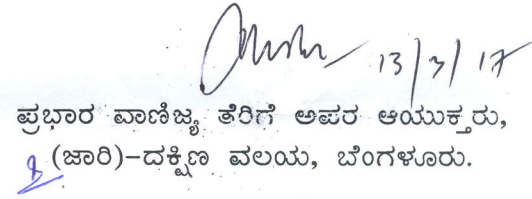 13/3/17
ಪ್ರಭಾರ ವಾಣಿಜ್ಯ ತೆರಿಗೆ ಅಪರ ಆಯುಕ್ತರು,
(ಜಾರಿ)–ದಕ್ಷಿಣ ವಲಯ, ಬೆಂಗಳೂರು.